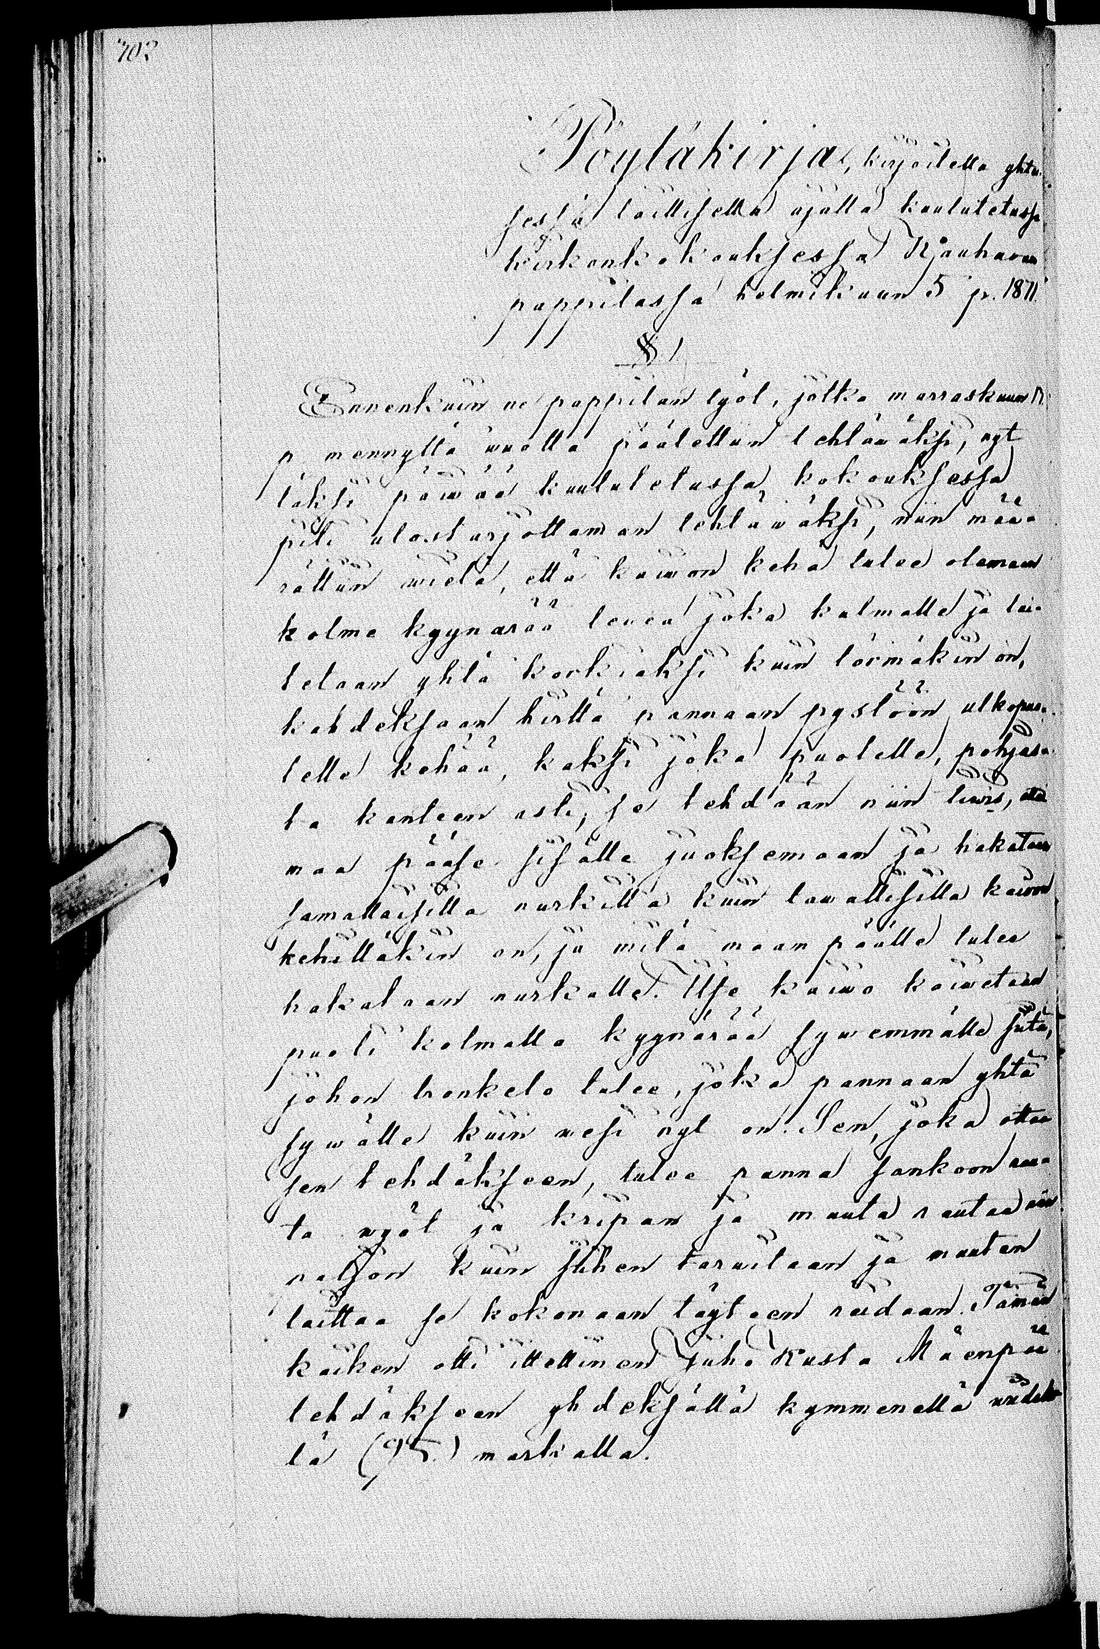 702
Pöytäkirja, kirjoitettu yhtei-
sessä laillisella ajalla kuulutetussa
kirkonkokouksessa Kauhavan
pappilassa helmikuun 5 p. 1871.
§ 1
Ennenkuin ne pappilan työt, jotka marraskuun
p. mennyttä vuotta päätettiin tehtäwäksi, nyt
täksi päiwää kuulutetussa kokouksessa
piti ulostarjottaman tehtäwäksi, niin mää-
rättiin wielä, että kaiwon kehä tulee olemaan
kolme kyynärää leveä joka kulmalle ja lai-
tetaan yhtä korkiaksi kuin törmäkin on,
kahdeksaan hirttä pannaan pystöön ulkopuo-
lelle kehää, kaksi joka puolelle, pohjas-
ta kanteen asti; se tehdään niin tiwis, ettei
maa pääse sisälle juoksemaan ja hakataan
samallaisilla nurkilla kuin tawallisilla kaiwon
kehilläkin on, ja mitä maan päälle tulee
hakataan nurkalle. Itse kaiwo kaiwetaan
puoli kolmatta kyynärää sywemmälle siitä,
johon tronkelo tulee, joka pannaan yhtä
sywälle kuin wesi nyt on. Sen, joka ottaa
sen tehdäkseen, tulee panna sankoon rau-
ta wyöt ja kripan ja muuta rautaa niin
paljon kuin siihen tarwitaan ja muuten
laittaa se kokonaan täyteen reidaan. Tämän
kaiken otti ittellinen Juho Kusta Mäenpää
tehdäkseen yhdeksällä kymmenellä wiidel-
lä (95) markalla.